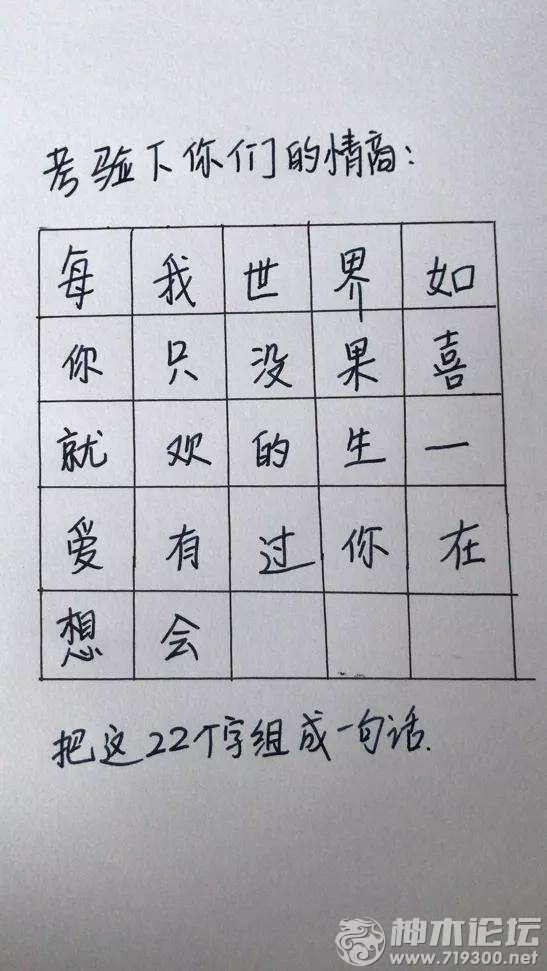 考验下你们的情商:
每 我 世 界 如
你 只 没 果 喜
就 欢 的 生 一
爱 有 过 你 在
想 会
把这22个字组成一句话.
神木论坛
www.719300.net